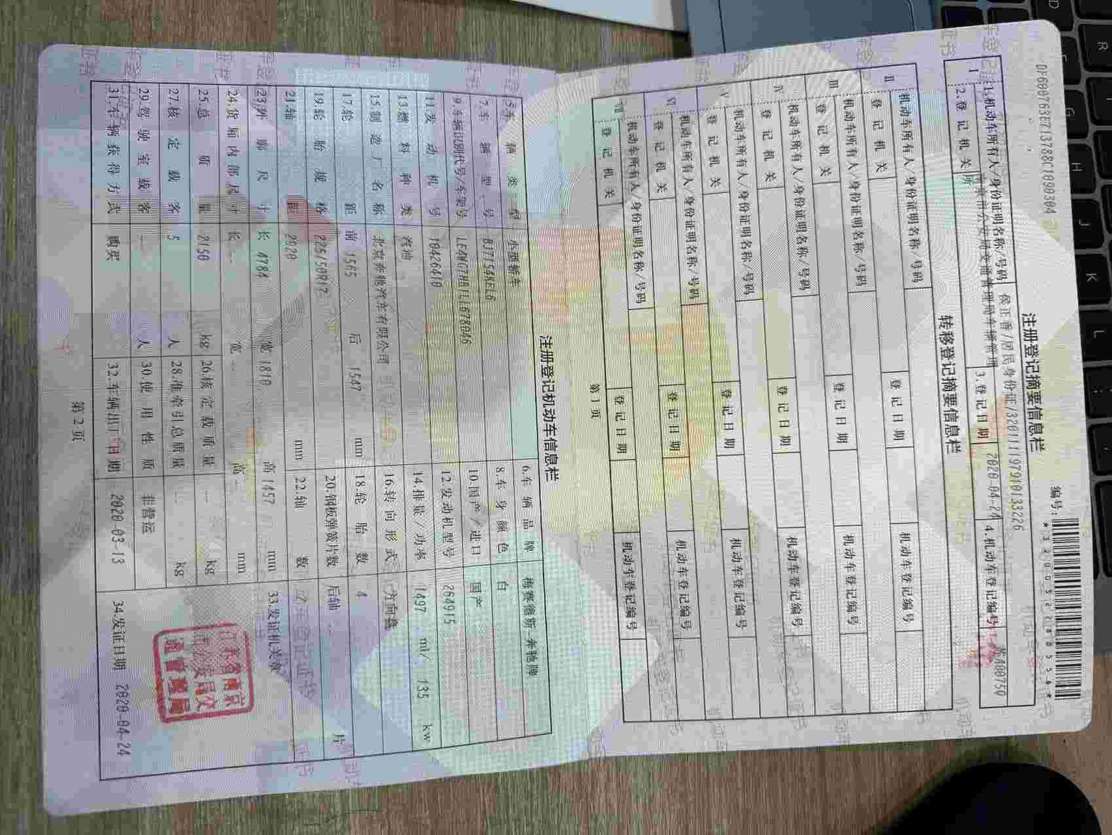 编号:
DF600763E713788C1090304
注册登记摘要信息栏
I
1.机动车所有人/身份证明名称/号码
侯正香/居民身份证/320111197910133226
2.登记机关
3.登记日期
2020-04-24
4.机动车登记编号
转移登记摘要信息栏
II
机动车所有人/身份证明名称/号码
登记机关
登记日期
机动车登记编号
III
机动车所有人/身份证明名称/号码
登记机关
登记日期
机动车登记编号
IV
机动车所有人/身份证明名称/号码
登记机关
登记日期
机动车登记编号
V
机动车所有人/身份证明名称/号码
登记机关
登记日期
机动车登记编号
VI
机动车所有人/身份证明名称/号码
登记机关
登记日期
机动车登记编号
VII
机动车所有人/身份证明名称/号码
登记机关
登记日期
机动车登记编号
第1页
注册登记机动车信息栏
5.车辆类型 小型轿车 6.车辆品牌 梅赛德斯-奔驰牌
7.车辆型号 BJ7154KEL6 8.车身颜色 白
9.车辆识别代号/车架号 10.国产/进口 国产
11.发动机号 12.发动机型号 264915
13.燃料种类 汽油 14.排量/功率 1497 ml/ 135 kw
15.制造厂名称 北京奔驰汽车有限公司 16.转向形式 方向盘
17.轮距 前 1565 后 1547 mm 18.轮胎数 4
19.轮胎规格 225/50R17 20.钢板弹簧片数 后轴 片
21.轴距 2920 mm 22.轴数 2
23.外廓尺寸 长 4784 宽 1810 高 1457 mm
33.发证机关章
24.货厢内部尺寸 长 宽 高 mm
25.总质量 2150 kg 26.核定载质量 kg
27.核定载客 5 人 28.准牵引总质量 kg
江苏省南京
市公安局交
通管理局
29.驾驶室载客 人 30.使用性质 非营运
31.车辆获得方式 购买 32.车辆出厂日期 2020-03-13
34.发证日期 2020-04-24
第2页